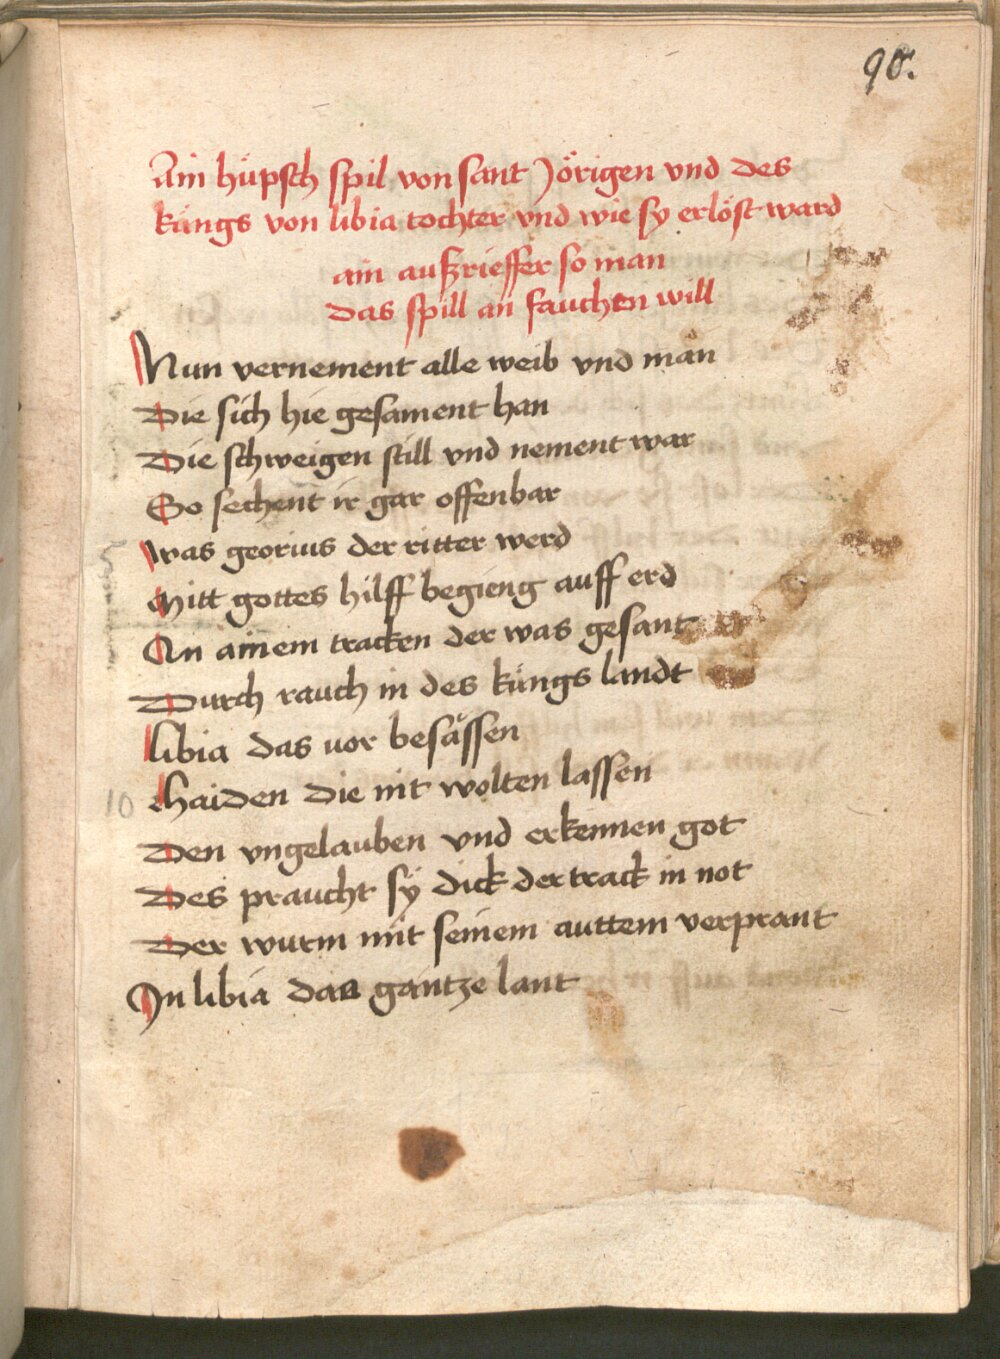 90.
Ain hüpsch spil von sant Jörigen vnd des
küngs von libia tochter vnd wie sy erlöst ward
ain außrieffer so man
das spill an fauchen will
Nun vernement alle weib vnd man
Die sich hie gesament han
Die schweigen still vnd nement war
So sechent ir gar offenbar
5
was georius der ritter werd
Mitt gottes hilff begieng auff erd
An ainem tracken der was gesant
Durch rauch in des küngs landt
libia das vor besässen
10
Haiden die nit wolten lassen
Den vngelauben vnd erkennen got
Des praucht sÿ dick der track in not
Der wurm mit seinem auttem verprant
In libia das gantze lant